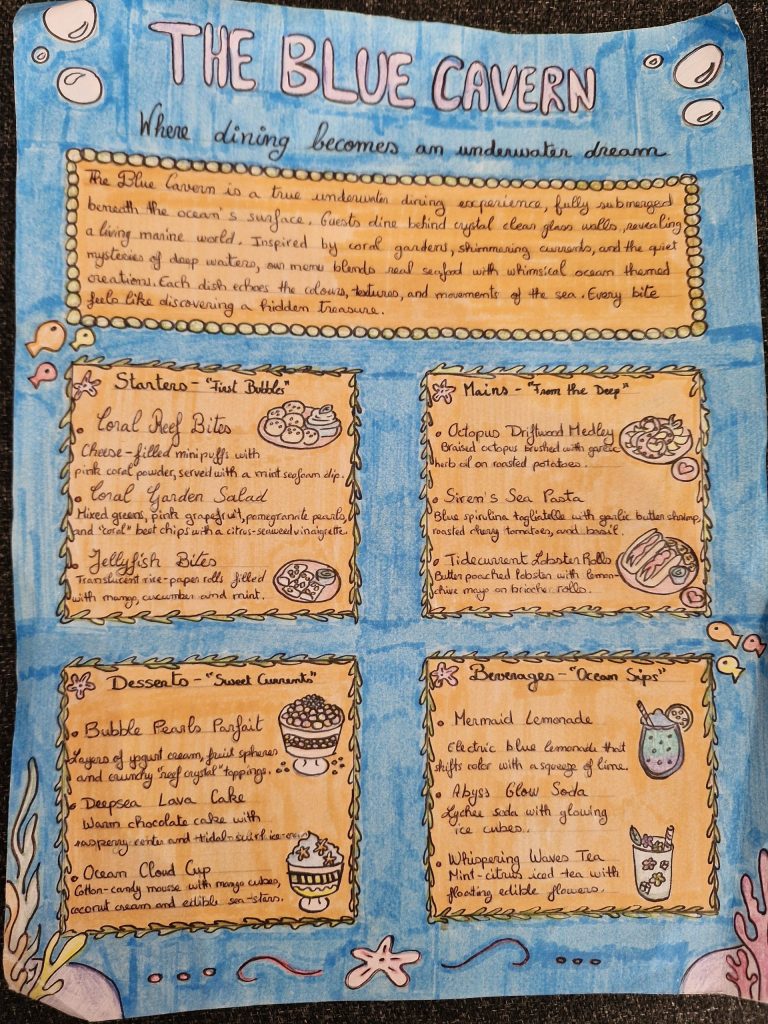 THE BLUE CAVERN
Where dining becomes an underwater dream
The Blue Cavern is a true underwater dining experience, fully submerged
beneath the ocean's surface. Guests dine behind crystal clear glass walls, revealing
a living marine world. Inspired by coral gardens, shimmering currents, and the quiet
mysteries of deep waters, our menu blends real seafood with whimsical ocean themed
creations. Each dish echoes the colours, textures, and movements of the sea. Every bite
feels like discovering a hidden treasure.
Starters - "First Bubbles"
Coral Reef Bites
Cheese-filled mini puffs with
pink coral powder, served with a mint seafoam dip.
Coral Garden Salad
Mixed greens, pink grapefruit, pomegranate pearls,
and "coral" beet chips with a citrus-seaweed vinaigrette.
Jellyfish Bites
Translucent rice-paper rolls filled
with mango, cucumber and mint.
Mains - "From the Deep"
Octopus Driftwood Medley
Braised octopus brushed with garlic
herb oil on roasted potatoes.
Siren's Sea Pasta
Blue spirulina tagliatelle with garlic butter shrimp,
roasted cherry tomatoes, and basil.
Tidecurrent Lobster Rolls
Butter poached lobster with lemon-
chive mayo on brioche rolls.
Desserts - "Sweet Currents"
Bubble Pearls Parfait
Layers of yogurt cream, fruit spheres
and crunchy "reef crystal" toppings.
Deepsea Lava Cake
Warm chocolate cake with
raspberry center and tidal-swirl ice-cream
Ocean Cloud Cup
Cotton-candy mousse with mango cubes,
coconut cream and edible sea-stars.
Beverages - "Ocean Sips"
Mermaid Lemonade
Electric blue lemonade that
shifts color with a squeeze of lime.
Abyss Glow Soda
Lychee soda with glowing
ice cubes.
Whispering Waves Tea
Mint-citrus iced tea with
floating edible flowers.